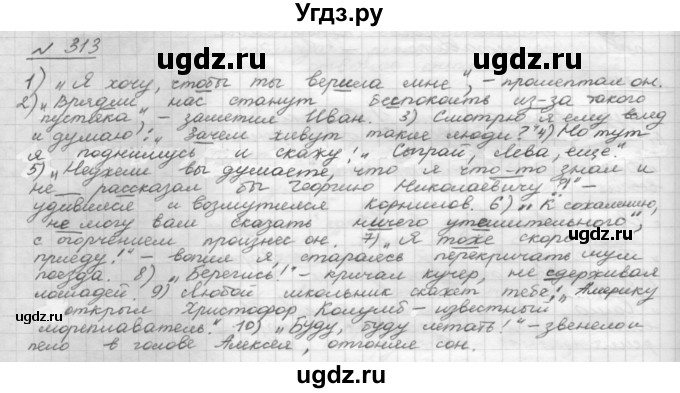 Угдз.ру
№ 313
1) „Я хочу, чтобы ты верила мне", – прошептал он.
2) „Вряд ли нас станут беспокоить из-за такого
пустяка", – заметил Иван. 3) Смотрю я ему вслед
и думаю: „Зачем живут такие люди?" 4) Но тут
я поднимусь и скажу: „Сыграй, Лева, еще."
5) „Неужели вы думаете, что я что-то знал и
не рассказал бы Георгию Николаевичу?" –
удивился и возмутился Корнилов. 6) „К сожалению,
не могу вам сказать ничего утешительного",
с огорчением произнес он. 7) „Я тоже скоро
приеду!" – вопил я, стараясь перекричать шум
поезда. 8) „Берегись!" – кричал кучер, не сдерживая
лошадей. 9) Любой школьник скажет тебе: „Америку
открыл Христофор Колумб – известный
мореплаватель." 10) „Буду, буду летать!" – звенело и
пело в голове Алексея, отгоняя сон.
ugdz.ru
ugdz.ru
ugdz.ru
ugdz.ru
ugdz.ru
ugdz.ru
ugdz.ru
ugdz.ru